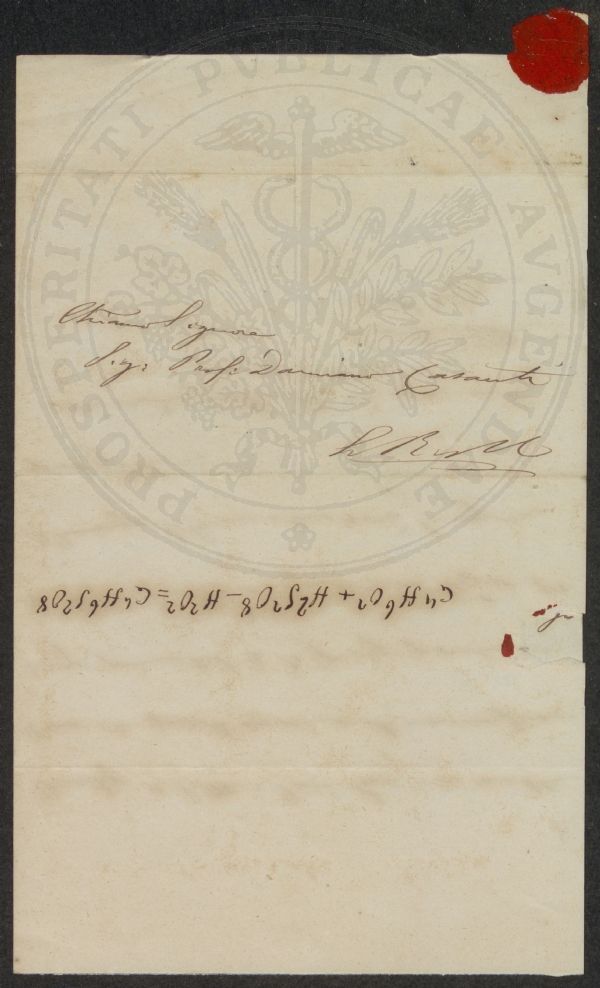 PROSPERITATI PUBLICAE AVGENDAE
Chiarmo Signore
Sig: Prof: Damiano Casanti
C4H6O2 + H2S2O8 - H2O2 = C4H6S2O8